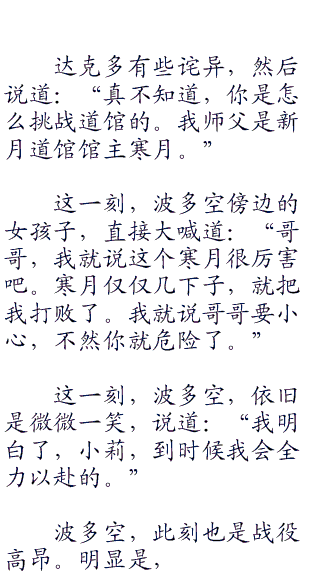 达克多有些诧异，然后
说道：“真不知道，你是怎
么挑战道馆的。我师父是新
月道馆馆主寒月。”
这一刻，波多空傍边的
女孩子，直接大喊道：“哥
哥，我就说这个寒月很厉害
吧。寒月仅仅几下子，就把
我打败了。我就说哥哥要小
心，不然你就危险了。”
这一刻，波多空，依旧
是微微一笑，说道：“我明
白了，小莉，到时候我会全
力以赴的。”
波多空，此刻也是战役
高昂。明显是，